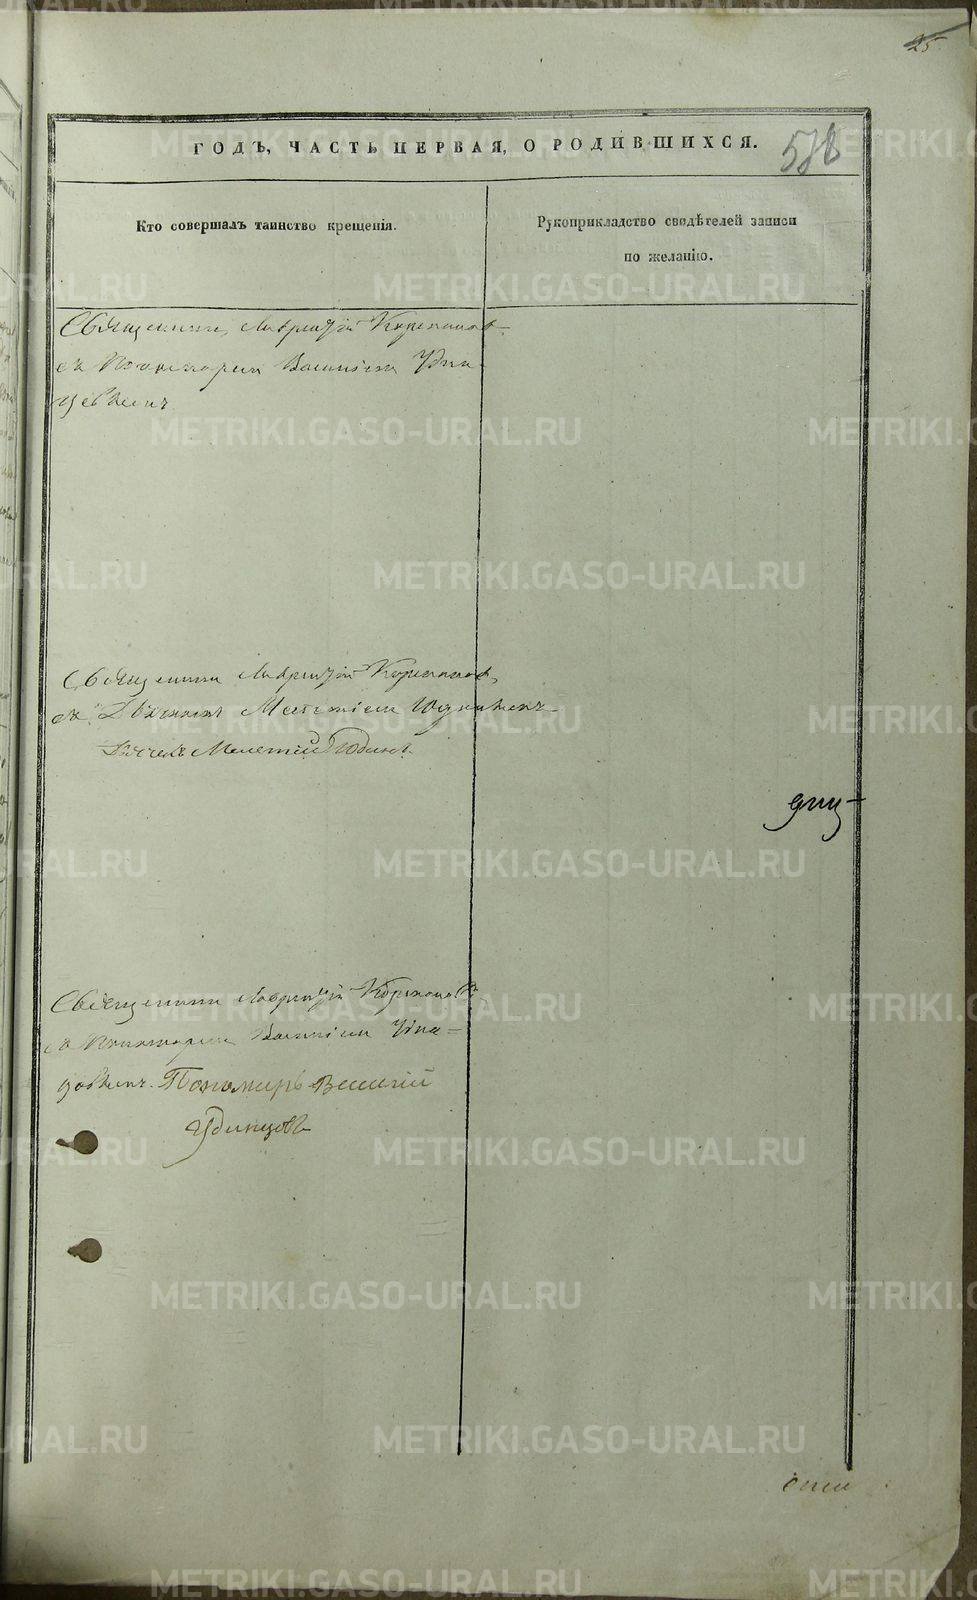 25
ГОДЪ, ЧАСТЬ ПЕРВАЯ, О РОДИВШИХСЯ.
Кто совершалъ таинство крещенія.
Рукоприкладство свидѣтелей записи
по желанію.
Священникъ Лаврентій Корепановъ
съ Пономаремъ Василіемъ Удин-
цевымъ
Священникъ Лаврентій Корепановъ
съ Дьячкомъ Мелетіемъ Юдинымъ
Дьячекъ Мелетій Юдинъ
Священникъ Лаврентій Корепановъ
съ Пономаремъ Василіемъ Удин-
цовымъ. Пономарь Василій
Удинцовъ
METRIKI.GASO-URAL.RU